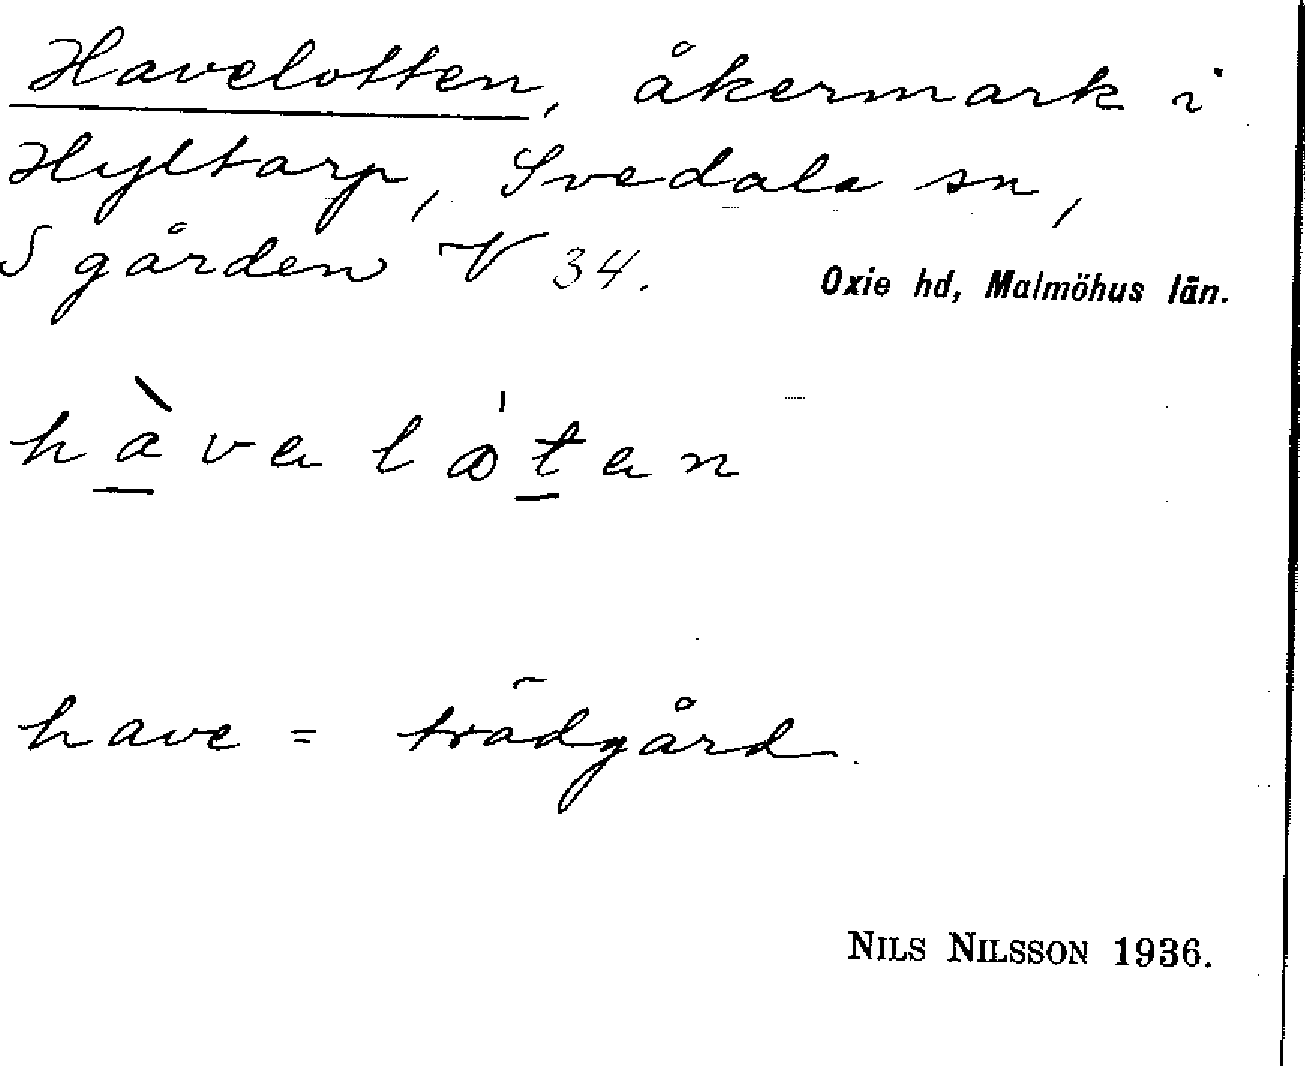 Havelotten, åkermark i
Hyltarp, Svedala sn,
S gården V 34.
Oxie hd, Malmöhus län.
hàvalωtan
have = trädgård.
NILS NILSSON 1936.